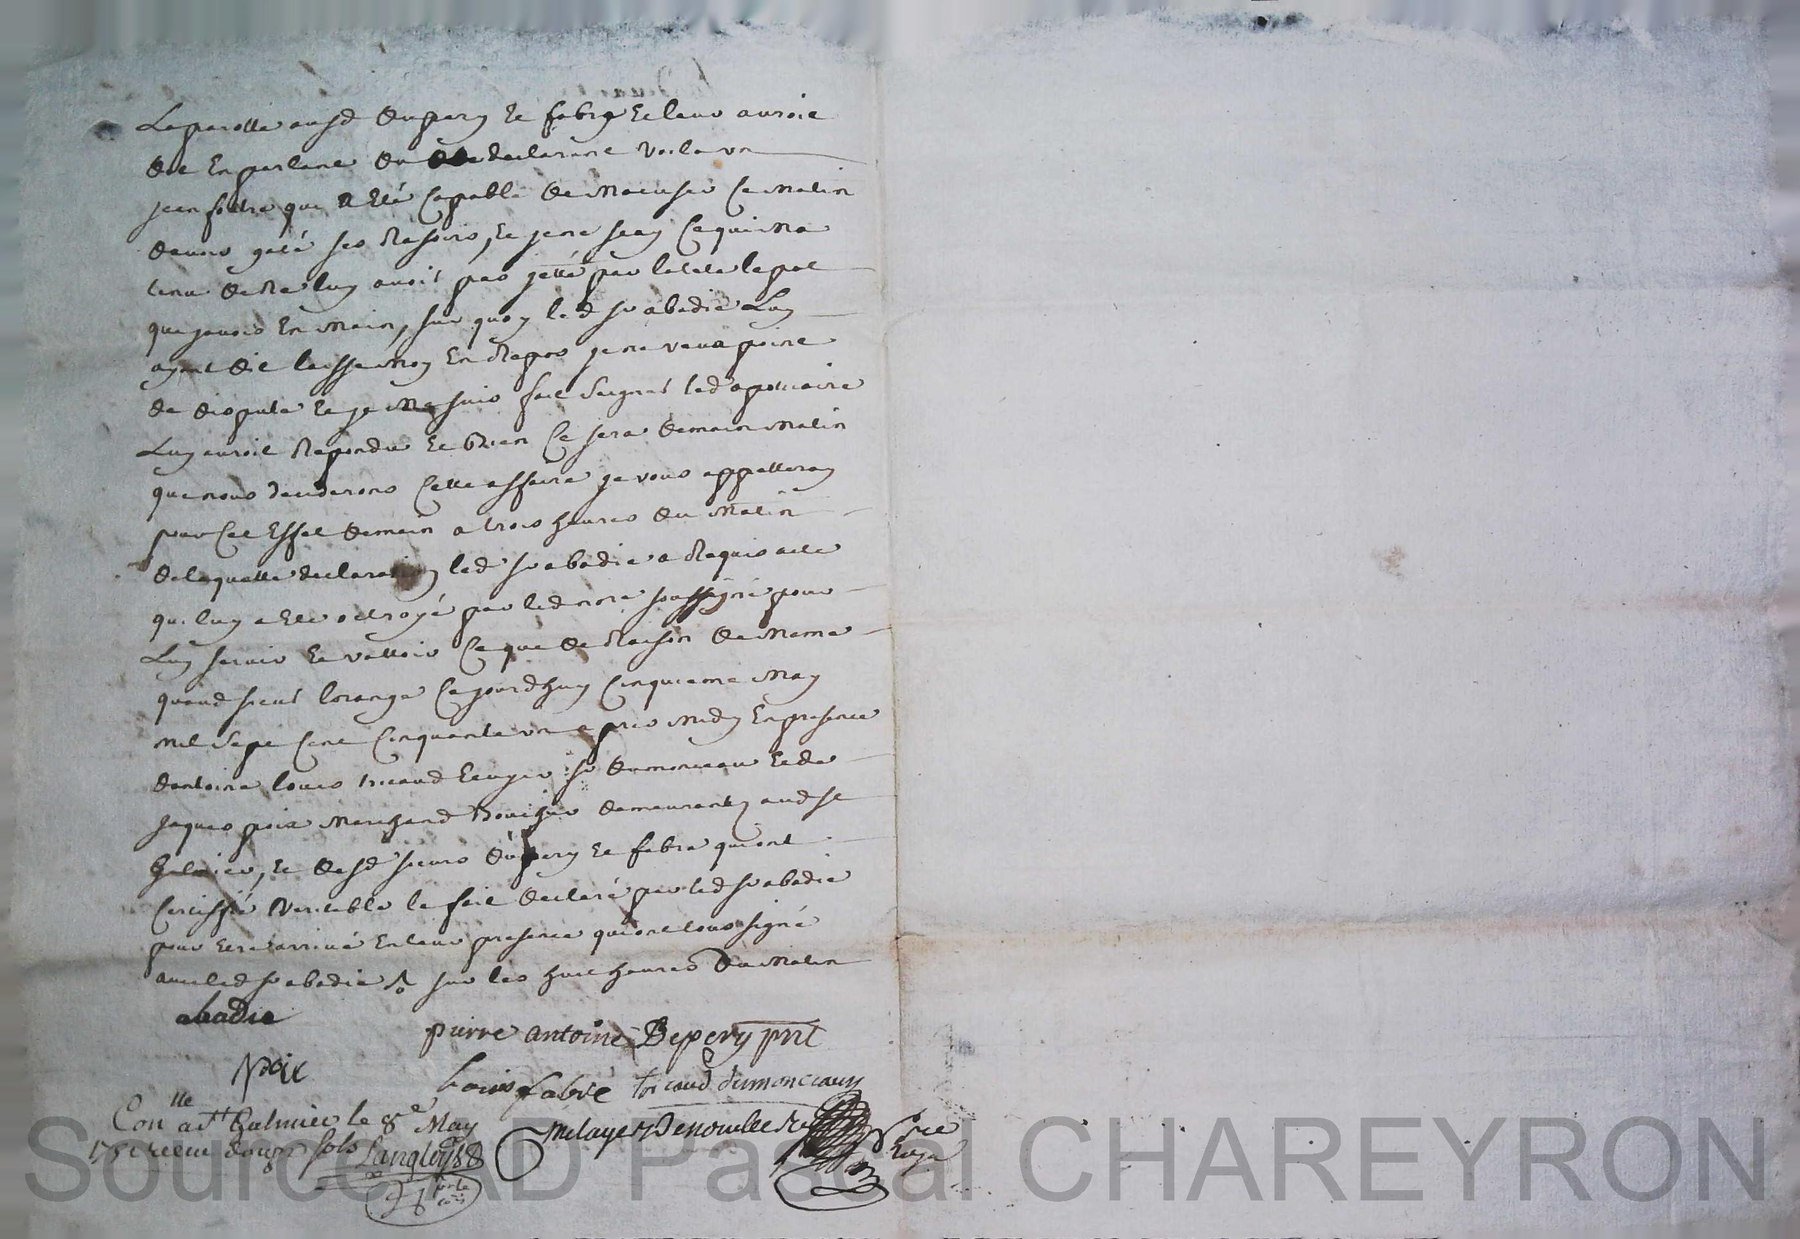 La parolle ausd Dupery et fabre et leur auroit
dit En parlant du declarant voila un
jean foutre qui a Eté Capable de Macuser Ce Matin
davoir gaté ses Rasoirs, Et je ne scay Ce qui Ma
tenu de Ne luy avoir pas jetté par la tete le pot
que javois En Main, sur quoy led sr abadie Luy
ayant dit laisse Moy En Repos je ne veux point
de dispute et je Me suis fait seigner led apoticaire
Luy auroit Repondu Et bien Ce sera demain Matin
que nous deciderons Cette affaire je vous appelleray
pour Cet Effet demain a trois heures du Matin
de laquelle declaration led sr abadie a Requis acte
qui luy a Eté octroyé par led nore soussigné pour
Luy servir Et valloir Ce que de Raison de Meme
quaud sieur lorange Cejourdhuy Cinquieme May
mil sept Cent Cinquante un apres Midy En presence
dantoine louis tricaud Ecuyer sr dumonceau et de
jaques poix Marchand demeurants aud st
galmier, et desd sieurs Dupery Et fabre qui ont
Certiffié Veritable le fait declaré par led sr abadie
pour Etre arrivé En leur presence qui ont tous signé
avec led sr abadie sur les huit heures du Matin
abadie
pierre antoine Depery prt
Poix
Louis fabre tricaud dumonceaux
Conlle a St Galmier le 8e May
1751 receu douze sols Langlois
Melayer Denouille
nre Royal
SourceAD Pascal CHAREYRON